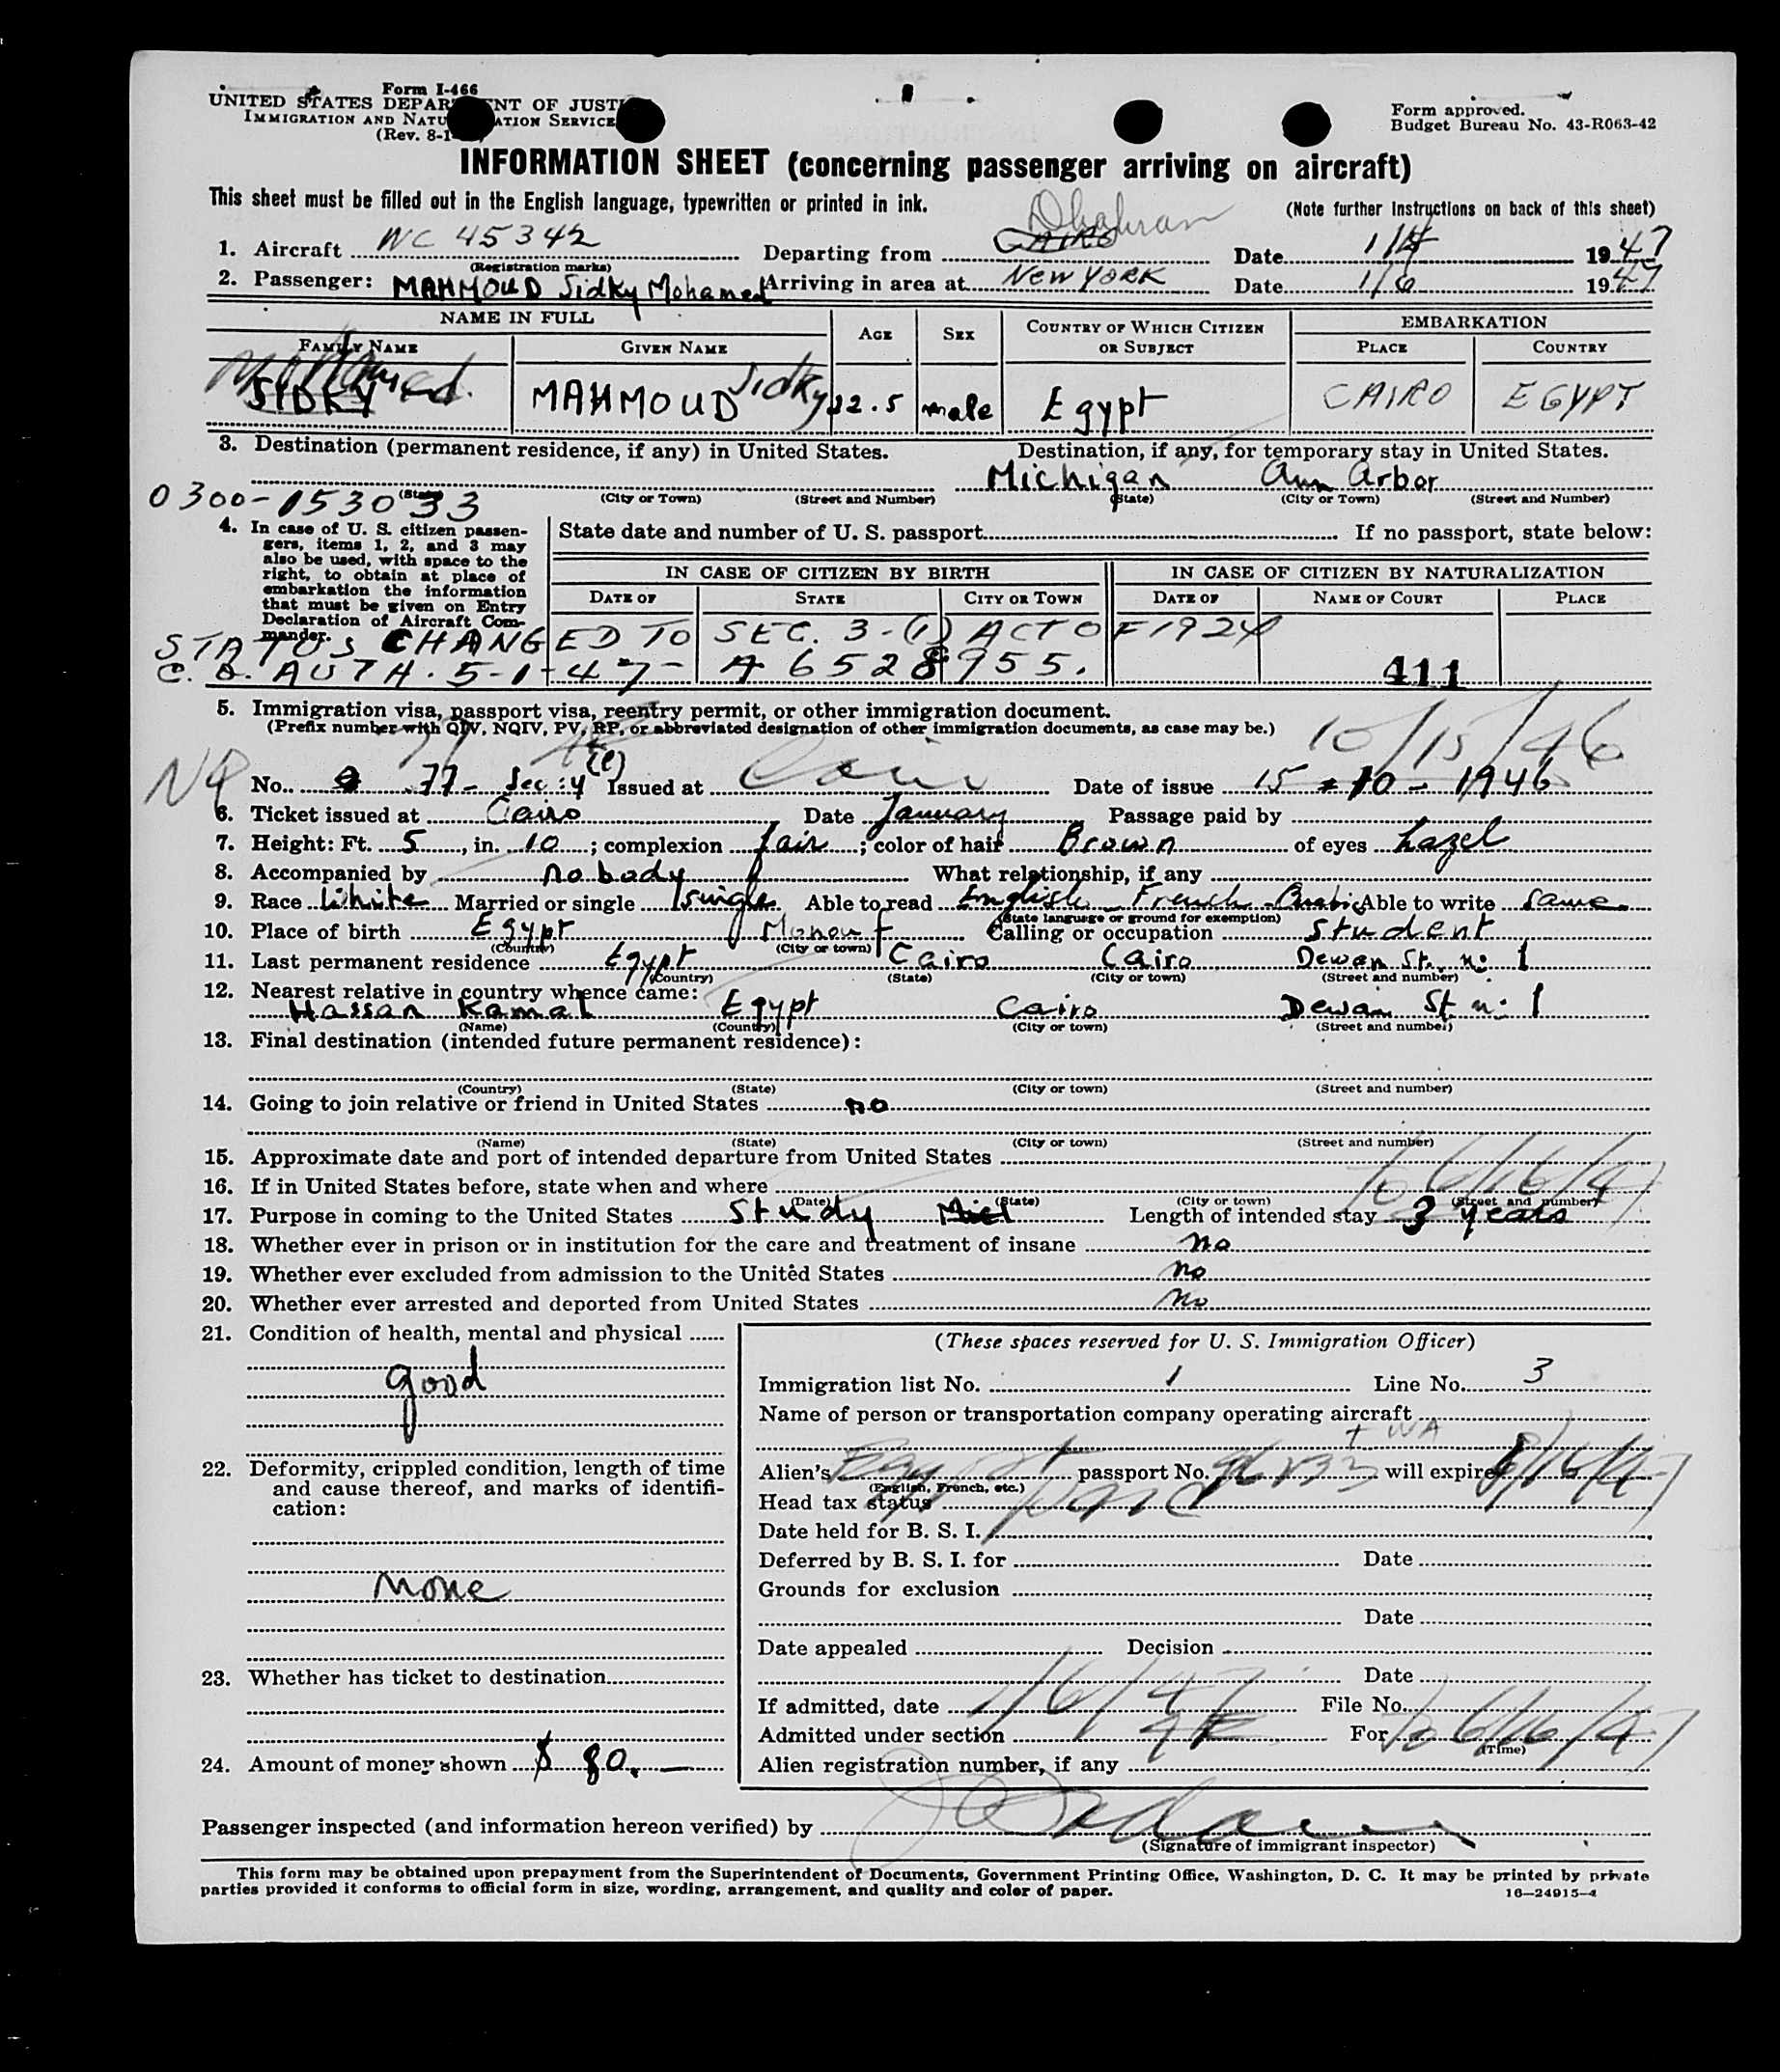 Form I-466
UNITED STATES DEPARTMENT OF JUSTICE
IMMIGRATION AND NATURALIZATION SERVICE
(Rev. 8-1
Form approved.
Budget Bureau No. 43-R063-42
INFORMATION SHEET (concerning passenger arriving on aircraft)
This sheet must be filled out in the English language, typewritten or printed in ink.
(Note further instructions on back of this sheet)
Dhahran
1. Aircraft NC 45342 Departing from CAIRO Date 1/4 1947
(Registration marks)
2. Passenger: MAHMOUD Sidky Mohamed Arriving in area at NEW YORK Date 1/6 1947
NAME IN FULL AGE SEX COUNTRY OF WHICH CITIZEN OR SUBJECT EMBARKATION
FAMILY NAME GIVEN NAME PLACE COUNTRY
Mohamed Sidky
SIDKY MAHMOUD 22.5 male Egypt CAIRO EGYPT
3. Destination (permanent residence, if any) in United States. Destination, if any, for temporary stay in United States.
Michigan Ann Arbor
(State) (City or Town) (Street and Number) (State) (City or Town) (Street and Number)
0300-153033
4. In case of U. S. citizen passen-
gers, items 1, 2, and 3 may
also be used, with space to the
right, to obtain at place of
embarkation the information
that must be given on Entry
Declaration of Aircraft Com-
mander.
State date and number of U. S. passport If no passport, state below:
IN CASE OF CITIZEN BY BIRTH IN CASE OF CITIZEN BY NATURALIZATION
DATE OF STATE CITY OR TOWN DATE OF NAME OF COURT PLACE
STATUS CHANGED TO SEC. 3-(1) ACT OF 1924
C.O. AUTH. 5-1-47- A 6528955.
411
5. Immigration visa, passport visa, reentry permit, or other immigration document.
(Prefix number with QIV, NQIV, PV, RP, or abbreviated designation of other immigration documents, as case may be.)
10/15/46
No. 77- Sec: 4 (e) Issued at Cairo Date of issue 15-10-1946
6. Ticket issued at Cairo Date January Passage paid by
7. Height: Ft. 5, in. 10; complexion fair; color of hair Brown of eyes hazel
8. Accompanied by nobody What relationship, if any
9. Race White Married or single single Able to read English French Arabic Able to write same
(State language or ground for exemption)
10. Place of birth Egypt Menouf Calling or occupation student
(Country) (City or town)
11. Last permanent residence Egypt Cairo Cairo Dewan St. n: 1
(Country) (State) (City or town) (Street and number)
12. Nearest relative in country whence came:
Hassan Kamal Egypt Cairo Dewan St n: 1
(Name) (Country) (City or town) (Street and number)
13. Final destination (intended future permanent residence):
(Country) (State) (City or town) (Street and number)
14. Going to join relative or friend in United States no
(Name) (State) (City or town) (Street and number)
15. Approximate date and port of intended departure from United States
16. If in United States before, state when and where
(Date) (State) (City or town) (Street and number)
To 6/16/47
17. Purpose in coming to the United States Study Length of intended stay 3 years
18. Whether ever in prison or in institution for the care and treatment of insane no
19. Whether ever excluded from admission to the United States no
20. Whether ever arrested and deported from United States no
21. Condition of health, mental and physical
good
22. Deformity, crippled condition, length of time
and cause thereof, and marks of identifi-
cation:
None
23. Whether has ticket to destination
24. Amount of money shown $ 80.—
(These spaces reserved for U. S. Immigration Officer)
Immigration list No. 1 Line No. 3
Name of person or transportation company operating aircraft
TWA
Alien's Egypt passport No. will expire 8/16/47
(English, French, etc.)
Head tax status paid
Date held for B. S. I.
Deferred by B. S. I. for Date
Grounds for exclusion
Date
Date appealed Decision
Date
If admitted, date 1/6/47 File No.
Admitted under section 4E For To 6/16/47
(Time)
Alien registration number, if any
Passenger inspected (and information hereon verified) by
(Signature of immigrant inspector)
This form may be obtained upon prepayment from the Superintendent of Documents, Government Printing Office, Washington, D. C. It may be printed by private
parties provided it conforms to official form in size, wording, arrangement, and quality and color of paper.
16—24915-4